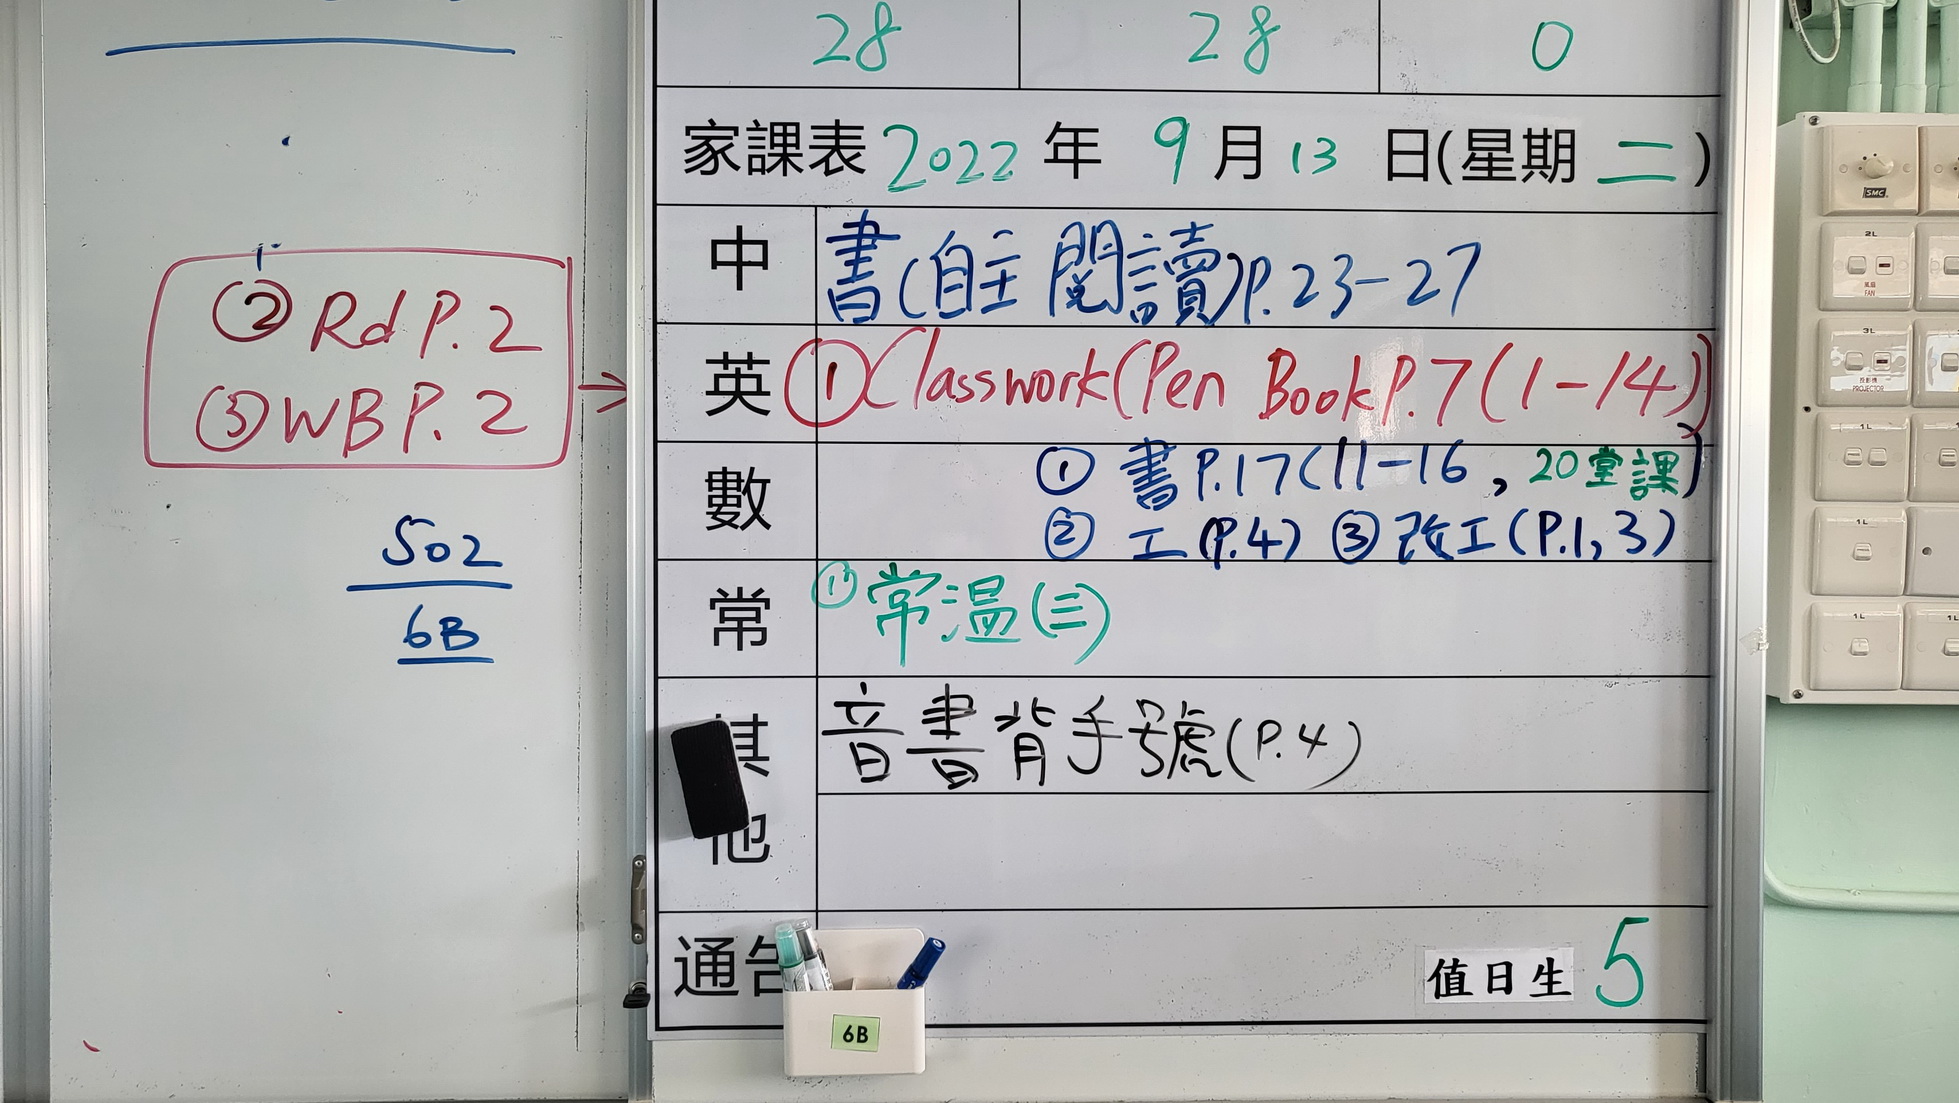 28 28 0
家課表 2022 年 9 月 13 日(星期 二)
中 書(自主閱讀)P.23-27
英 ①Classwork(Pen Book P.7(1-14))
② Rd P.2
③ WB P.2
數 ① 書P.17(11-16, 20堂課)
② 工(P.4) ③ 改工(P.1,3)
常 ① 常溫(三)
其他 音書背手號(P.4)
通告
值日生 5
502
6B
6B
SMC
2L
風扇
FAN
3L
投影機
PROJECTOR
1L
1L
1L
1L